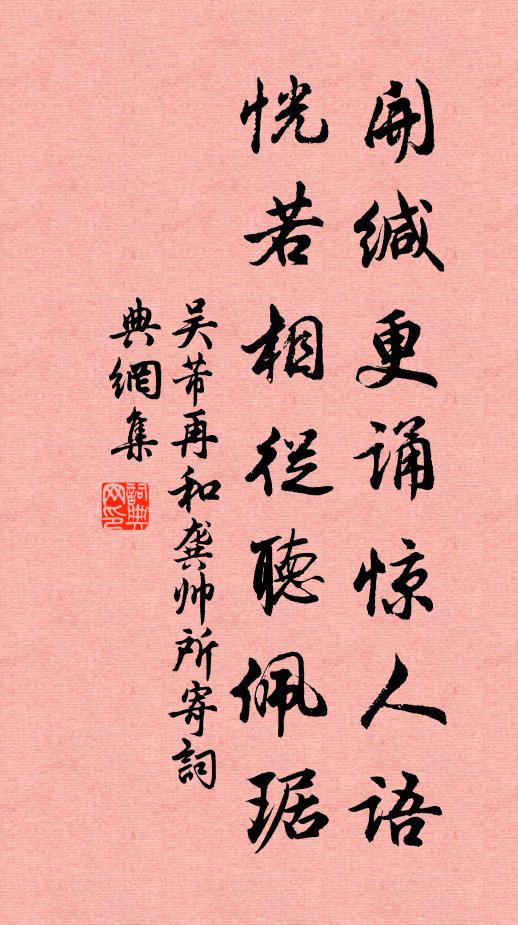 開缄更诵惊人语
恍若相從聽佩琚
吴芾再和龚帅所寄詞
典網集
詞典网印